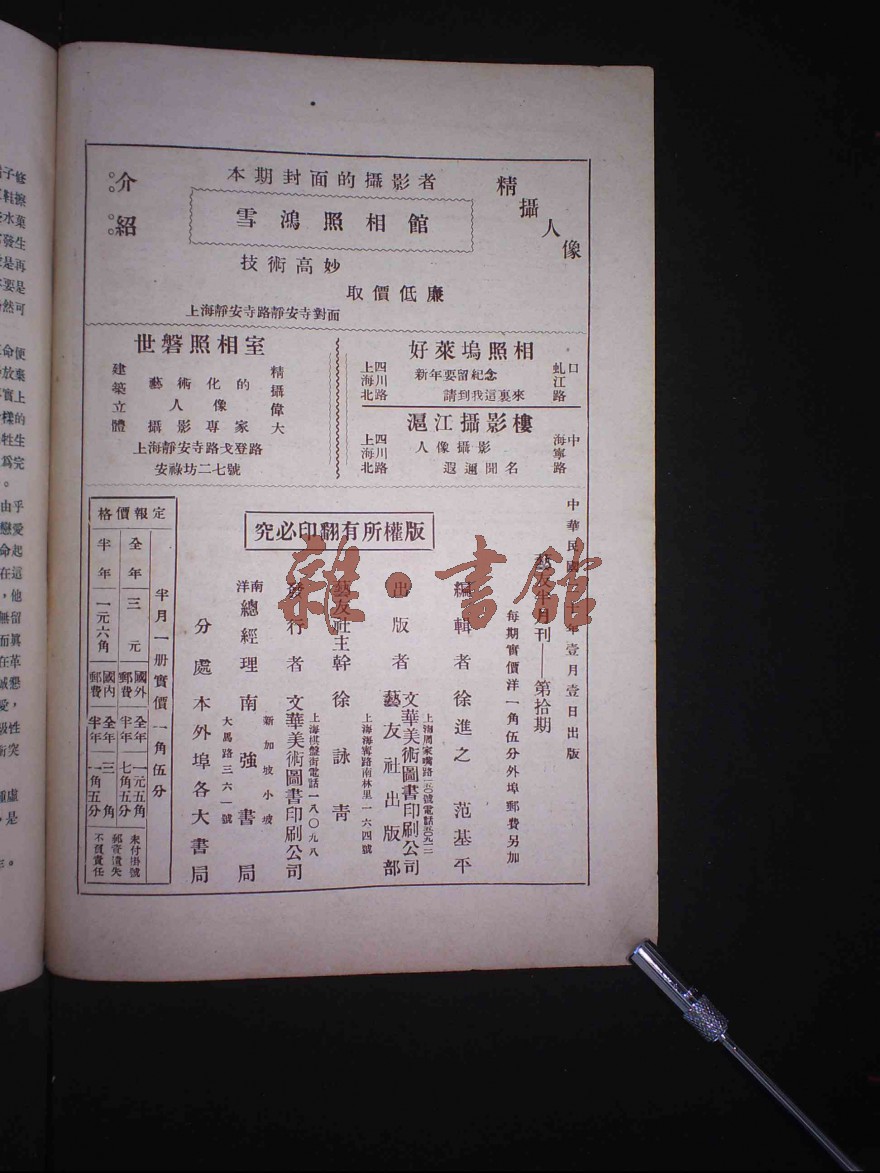 介紹
本期封面的攝影者
精攝人像
雪鴻照相館
技術高妙
取價低廉
上海靜安寺路靜安寺對面
世磐照相室
精攝偉大
藝術化的
人像
攝影專家
建築立體
上海靜安寺路戈登路
安祿坊二七號
好萊塢照相
虬江路口
新年要留紀念
請到我這裏來
上海四川北路
滬江攝影樓
海寧路中
人像攝影
遐邇聞名
上海四川北路
中華民國二十年壹月壹日出版
藝友半月刊——第拾期
每期實價洋一角伍分外埠郵費另加
版權所有翻印必究
編輯者 徐進之 范基平
出版者 文華美術圖書印刷公司
藝友社出版部
上海海寧路南林里一六四號
藝友社主幹 徐詠青
發行者 文華美術圖書印刷公司
上海棋盤街電話一八〇九八
南洋總經理 南強書局
新加坡小坡
大馬路三六一號
分處 本外埠各大書局
定報價格
半月一册實價一角伍分
全年 三元
國外郵費 全年 一元五角
半年 七角五分
半年 一元六角
國內郵費 全年 三角
半年 一角五分
未付掛號
郵寄遺失
不負責任
雜·書館